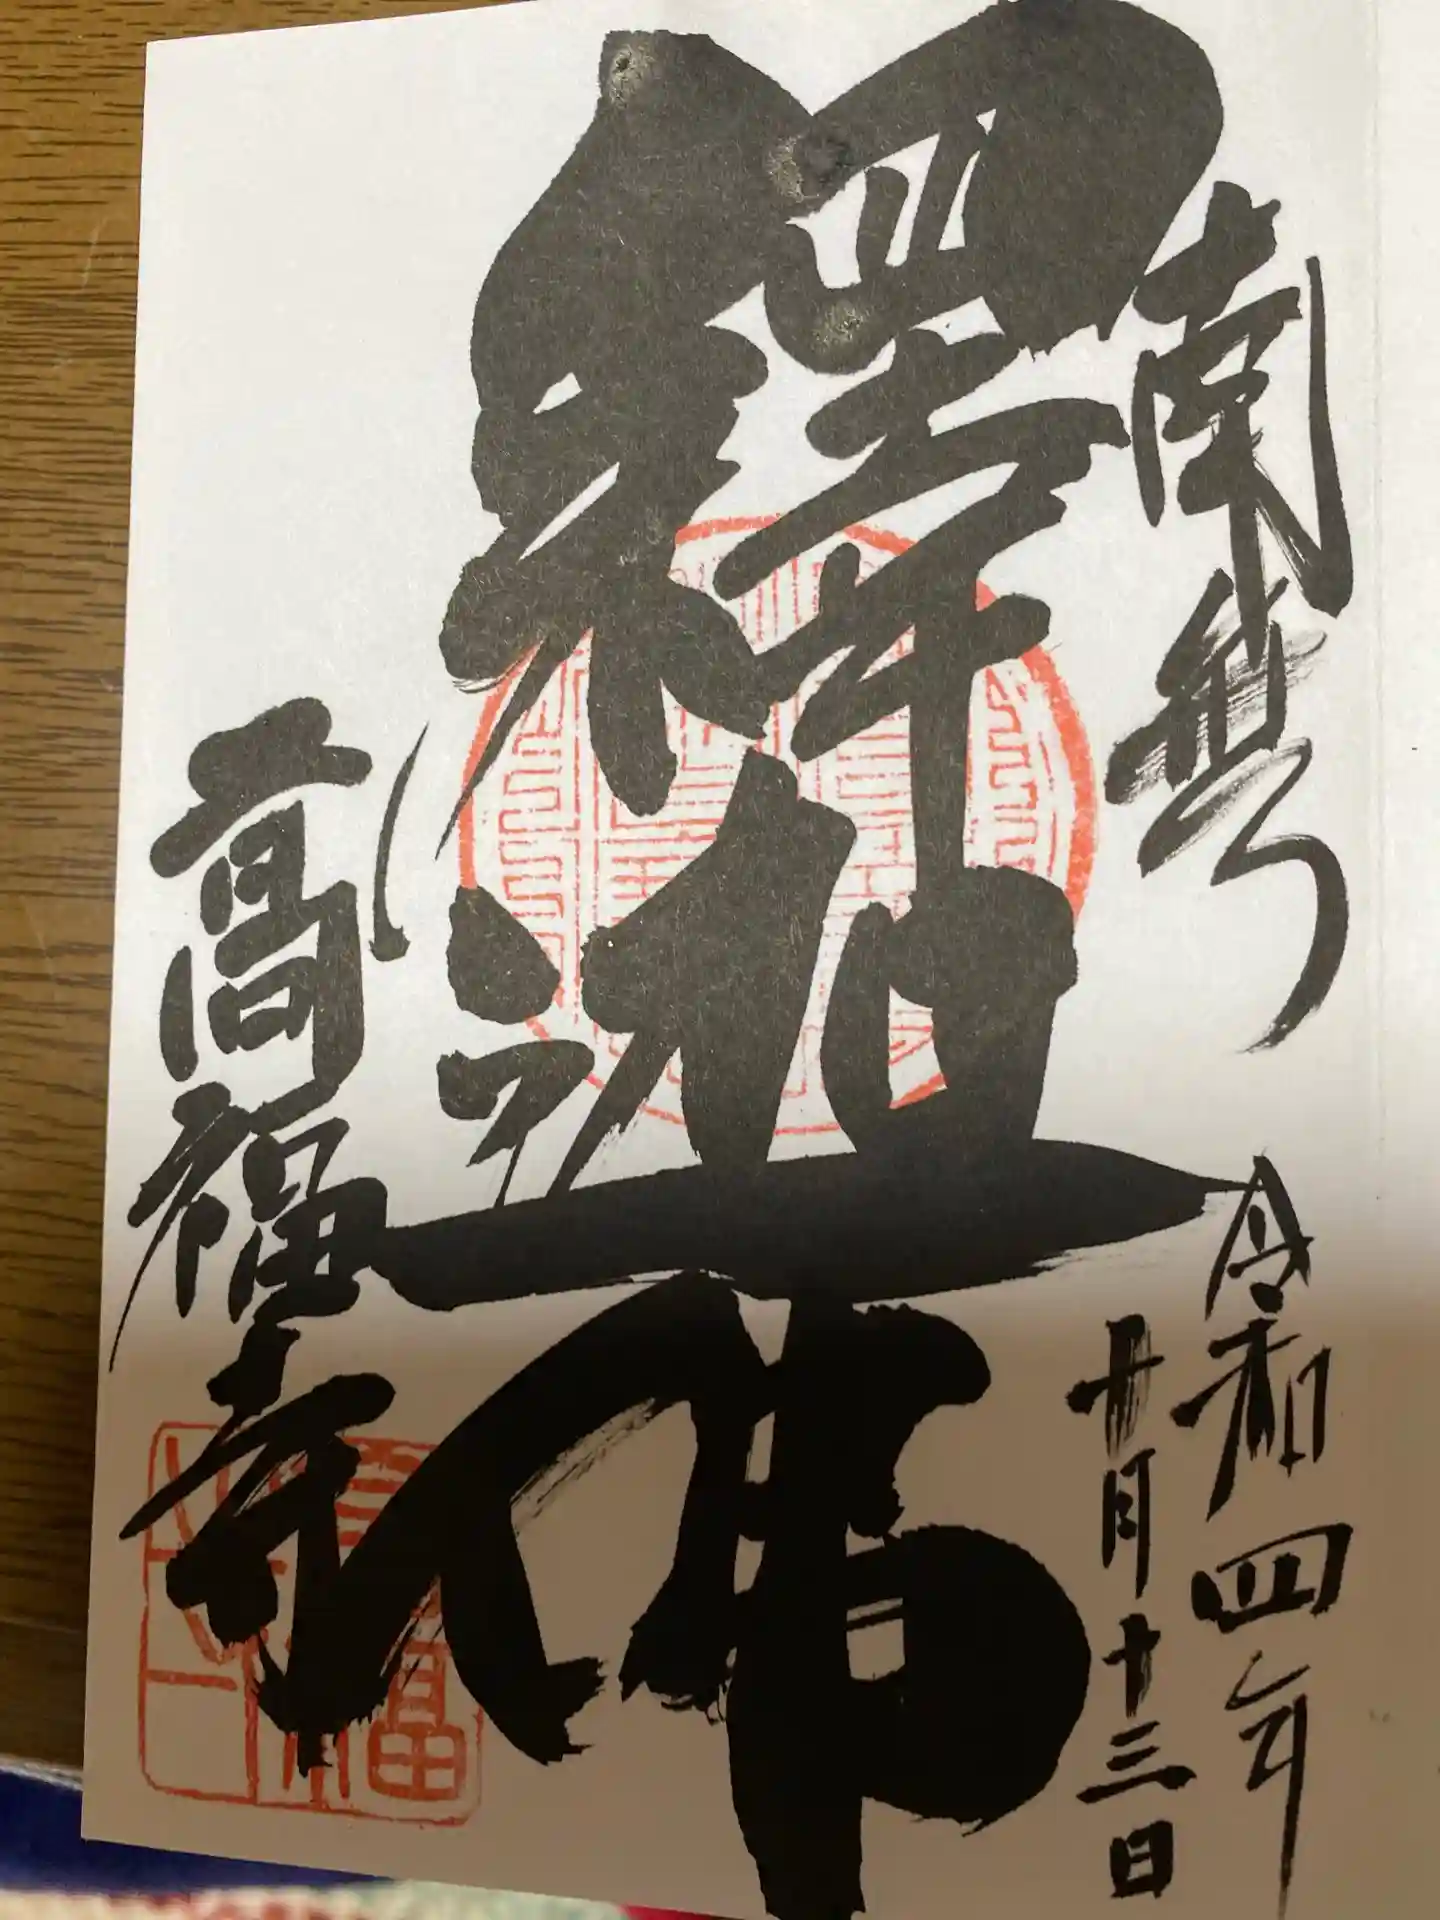 南無
釋迦佛
高福寺
令和四年
十月十三日